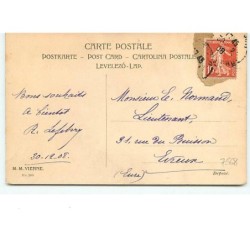 CARTE POSTALE
POSTKARTE - POST CARD - CARTOLINA POSTALE
LEVELEZŐ-LAP.
Bons souhaits
A bientôt
R. Lefebvre
30.12.08.
Monsieur E. Normand,
Lieutenant,
31. rue du Buisson
Evreux
(Eure)
M. M. VIENNE.